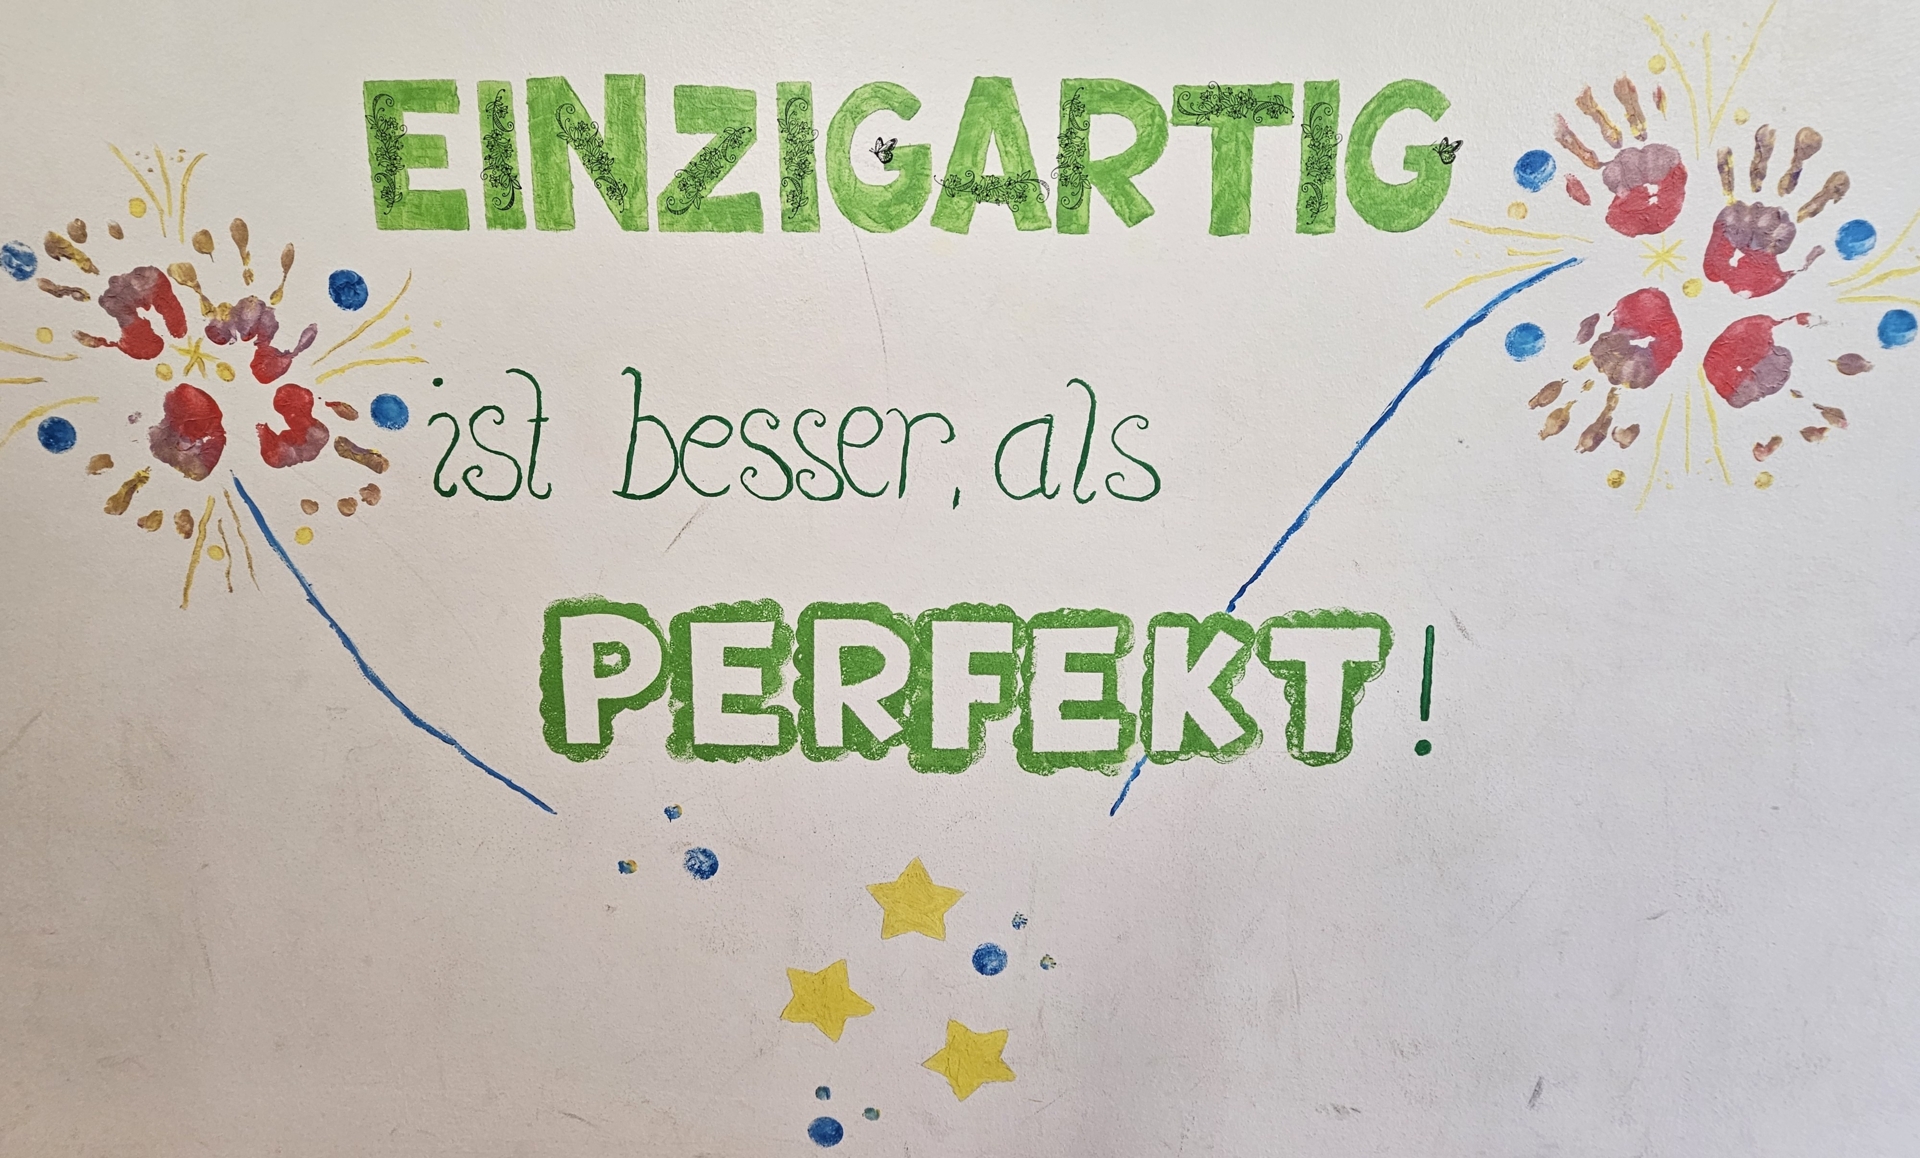 EINZIGARTIG
ist besser, als
PERFEKT!